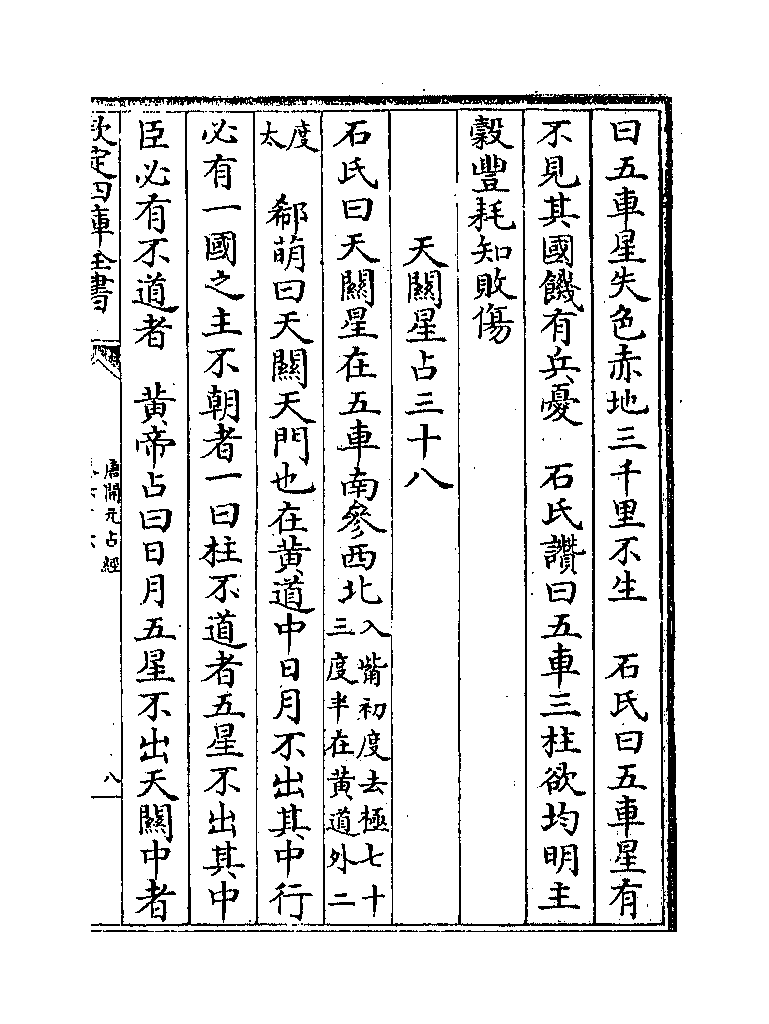 曰五車星失色赤地三千里不生　石氏曰五車星有
不見其國饑有兵憂　石氏讚曰五車三柱欲均明主
穀豐耗知敗傷
天闗星占三十八
石氏曰天闗星在五車南參西北入觜初度去極七十三度半在黄道外二
太度　郗萌曰天闗天門也在黄道中日月不出其中行
必有一國之主不朝者一曰柱不道者五星不出其中
臣必有不道者　黄帝占曰日月五星不出天闗中者
欽定四庫全書
唐開元占經
八